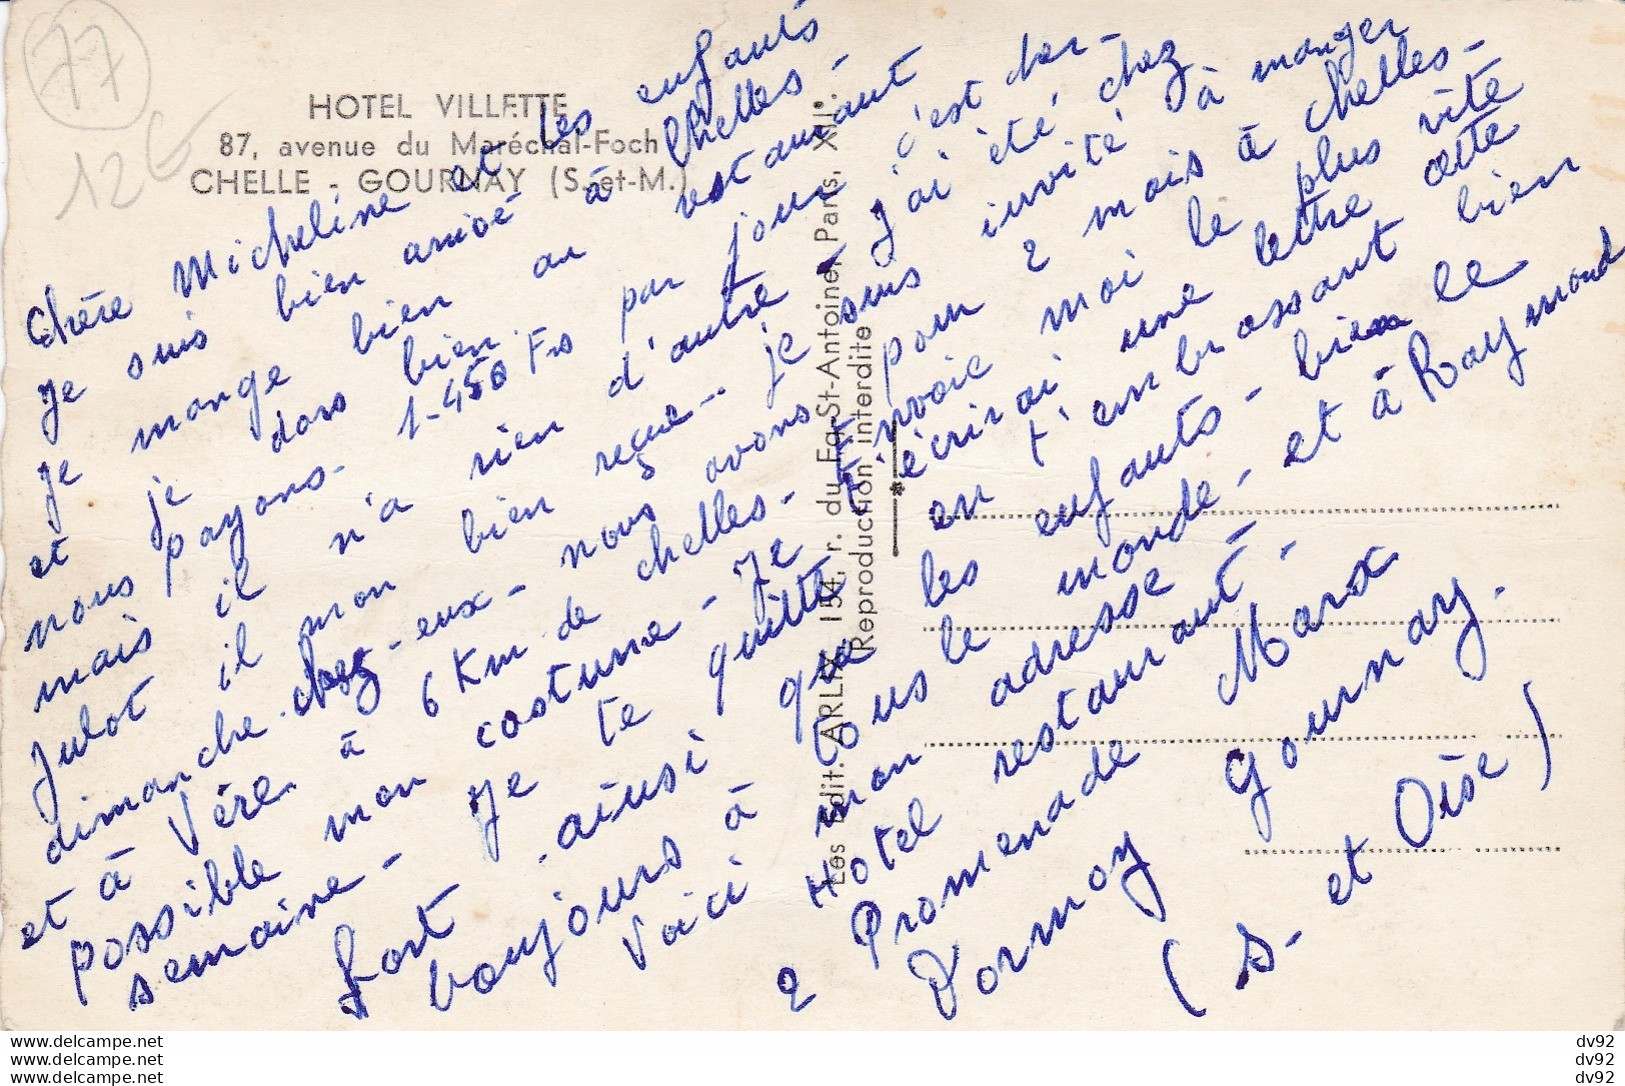 77
12€
HOTEL VILLETTE
87, avenue du Maréchal-Foch
CHELLE - GOURNAY (S.-et-M.)
Chère Micheline et les enfants
je suis bien arrivé à Chelles -
je mange bien au restaurant
et je dors bien.
nous payons. 1-450 Frs par jour c'est cher -
mais il n'a rien d'autre - j'ai été chez
Julot il mon bien reçue... je suis invité à manger
dimanche chez-eux - nous avons pour 2 mois à chelles -
et à Vère à 6 Km de chelles - Envoie moi le plus vite
possible mon costume - Je t'écrirai une lettre cette
semaine - Je te quitte en t'embrassant bien
fort ainsi que les enfants - bien le
bonjours à tous le monde - et à Raymond
Voici mon adresse -
Hotel restaurant -
2 Promenade Marx
Dormoy Gournay.
(S. et Oise)
Les Edit. ARLIX 154, r. du Fg-St-Antoine, Paris, XIIe.
Reproduction interdite
www.delcampe.net
www.delcampe.net
www.delcampe.net
dv92
dv92
dv92